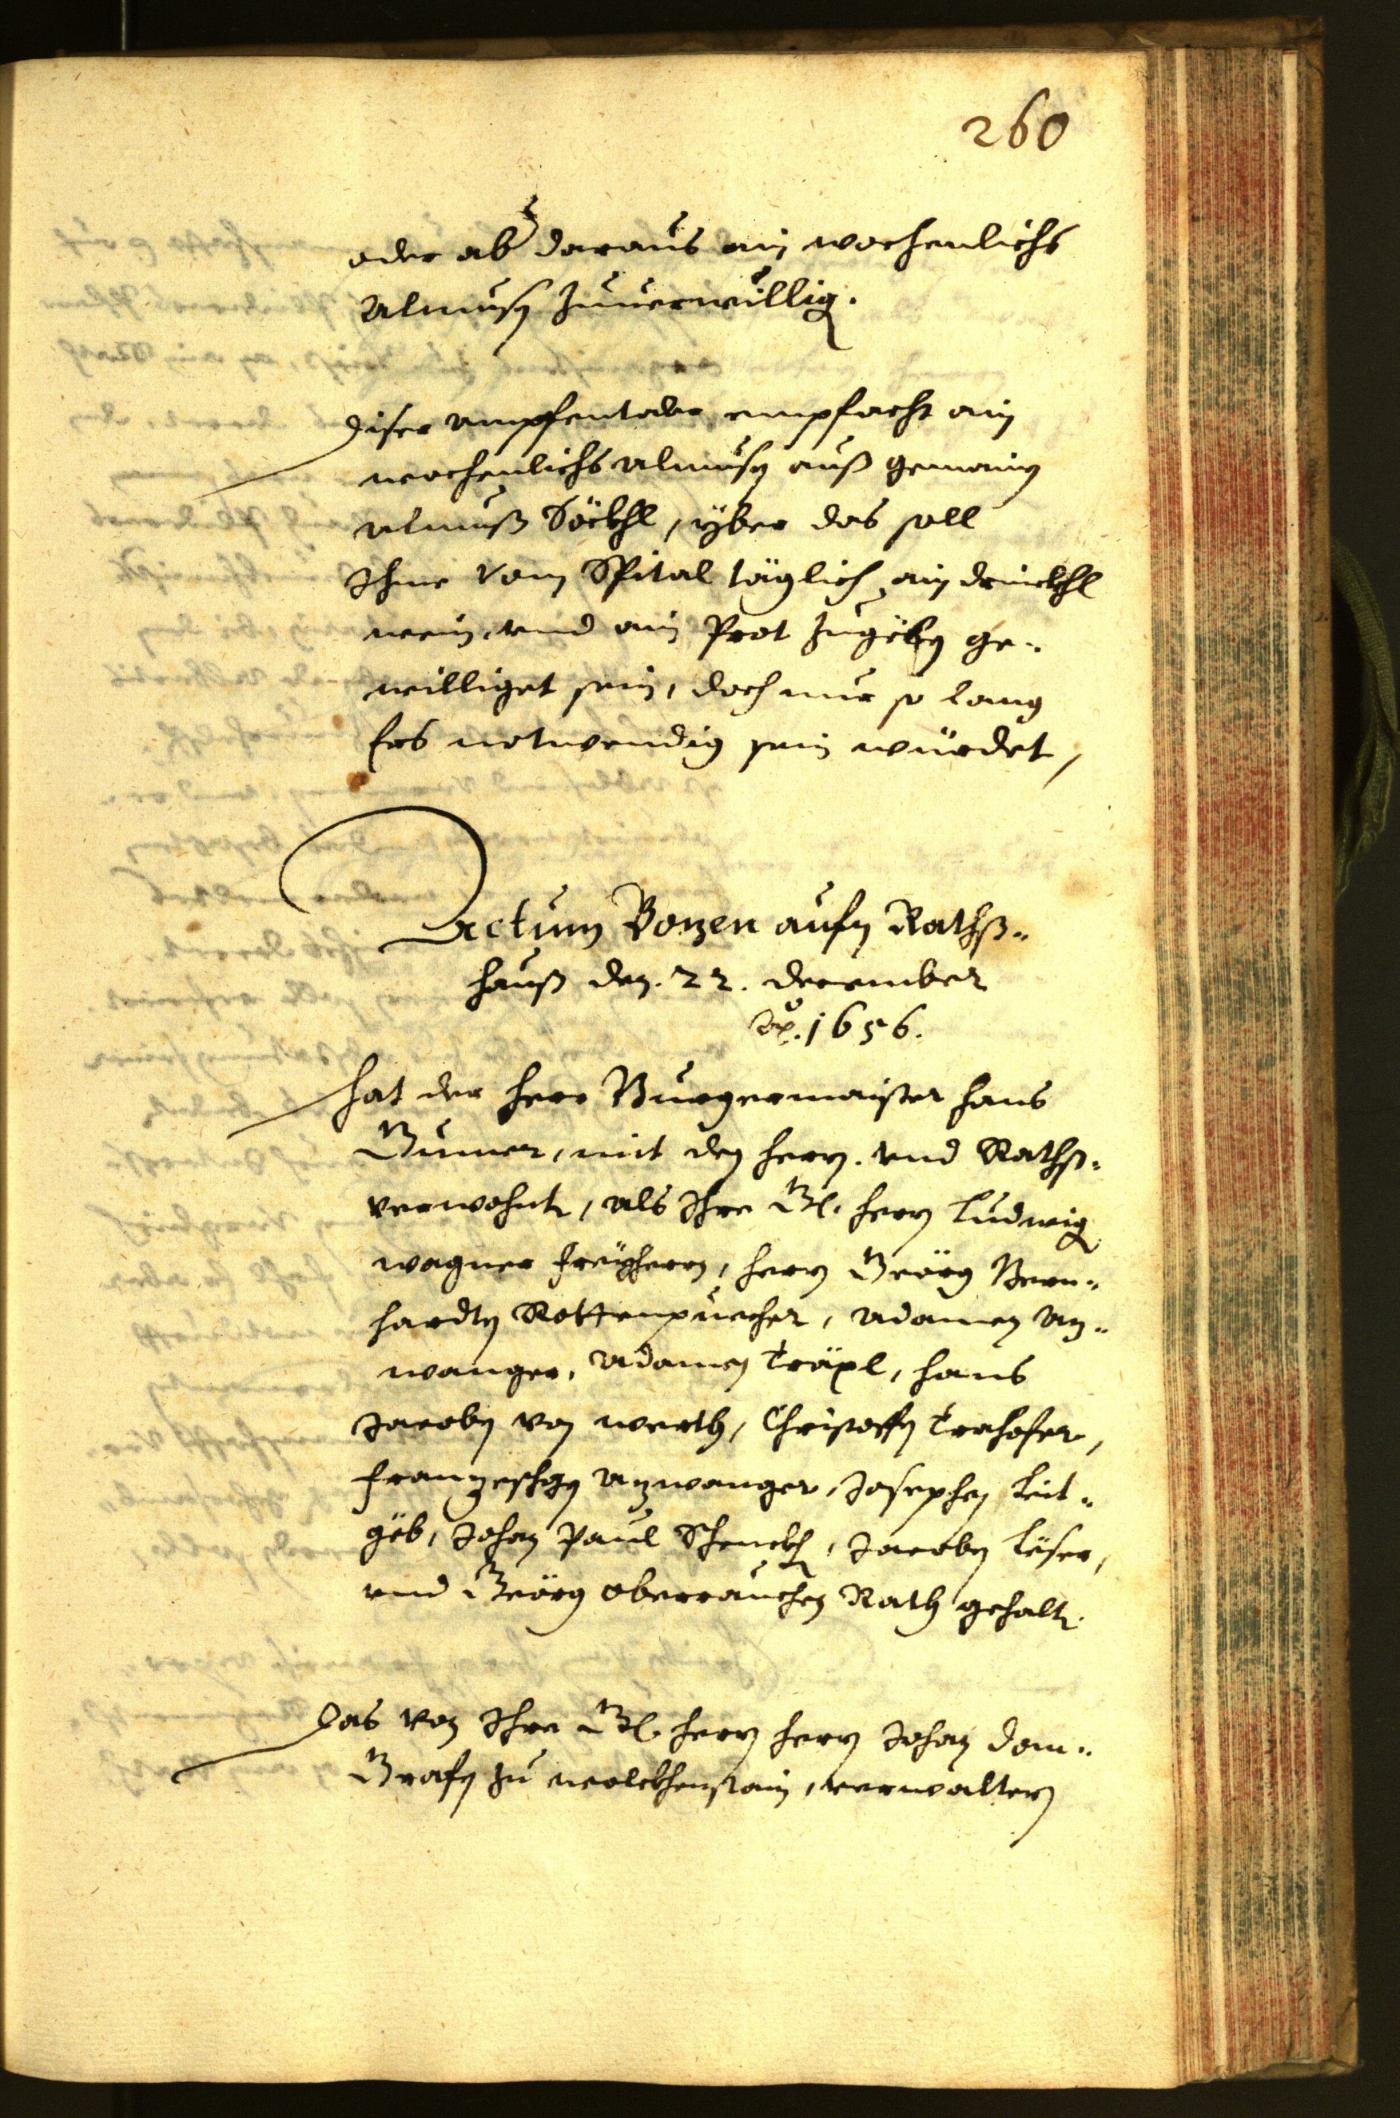 260
oder ab daraus ain wochenlichs
Almusen zuuerwillig.
Diser empfentader empfacht ain
wochenlichs Almusen auß gemainen
Almuß Säckhl, yber das soll
Ihme vom Spital täglich ain drinckhl
wein und ain Prot zugeben ge-
williget sein, doch nur so lang
es notwendig sein würdet,
Actum Bozen aufn Rathß-
hauß den 22. december
Ao. 1656.
Hat der Herr Burgermaister Hans
Gumer, mit den Herrn und Rathß-
verwohnten, als Ihre Gn. Herrn Ludwig
Wagner Freyherrn, Herrn Geörg Bern-
hardten Rottenpuecher, Adamen An-
wanger, Adamen Träxl, Hans
Jacoben von Werth, Christoffen Trahofer,
Franzeschgen Anwanger, Josephen Leit-
geb, Johan Paul Schenckh, Jacoben Leser,
und Geörg Oberrauchen Rath gehalten.
Das von Ihre Gn. Herrn Herrn Johan Dom-
Grafen zu Wolckhenstain, verwaltern